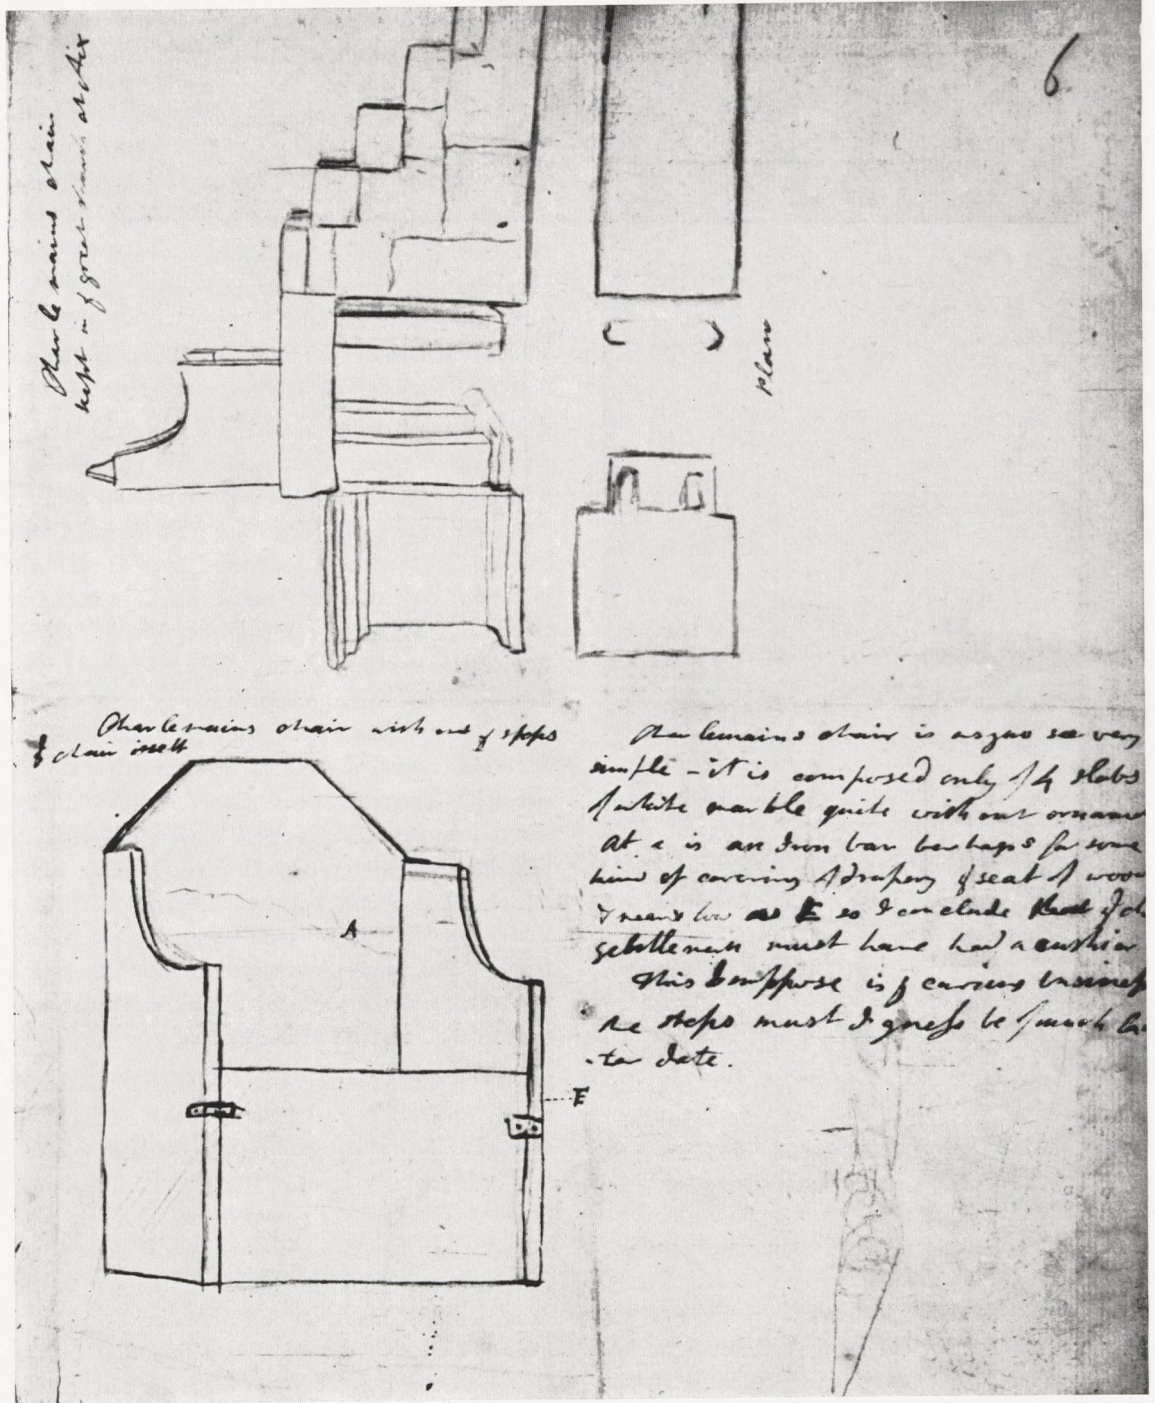 6
Charlemains chair
kept in great church at Aix
Plan
Charlemains chair with out steps
chair itself
A
E
Charlemains chair is as you see very
simple - it is composed only of 4 slabs
of white marble quite without ornam
At e is an Iron bar perhaps for some
kind of covering of drapery seat of woo
I means low as E so I conclude that
gentleman must have had a cushion
This I suppose is curious business
the steps must I guess be of much la
-ter date.